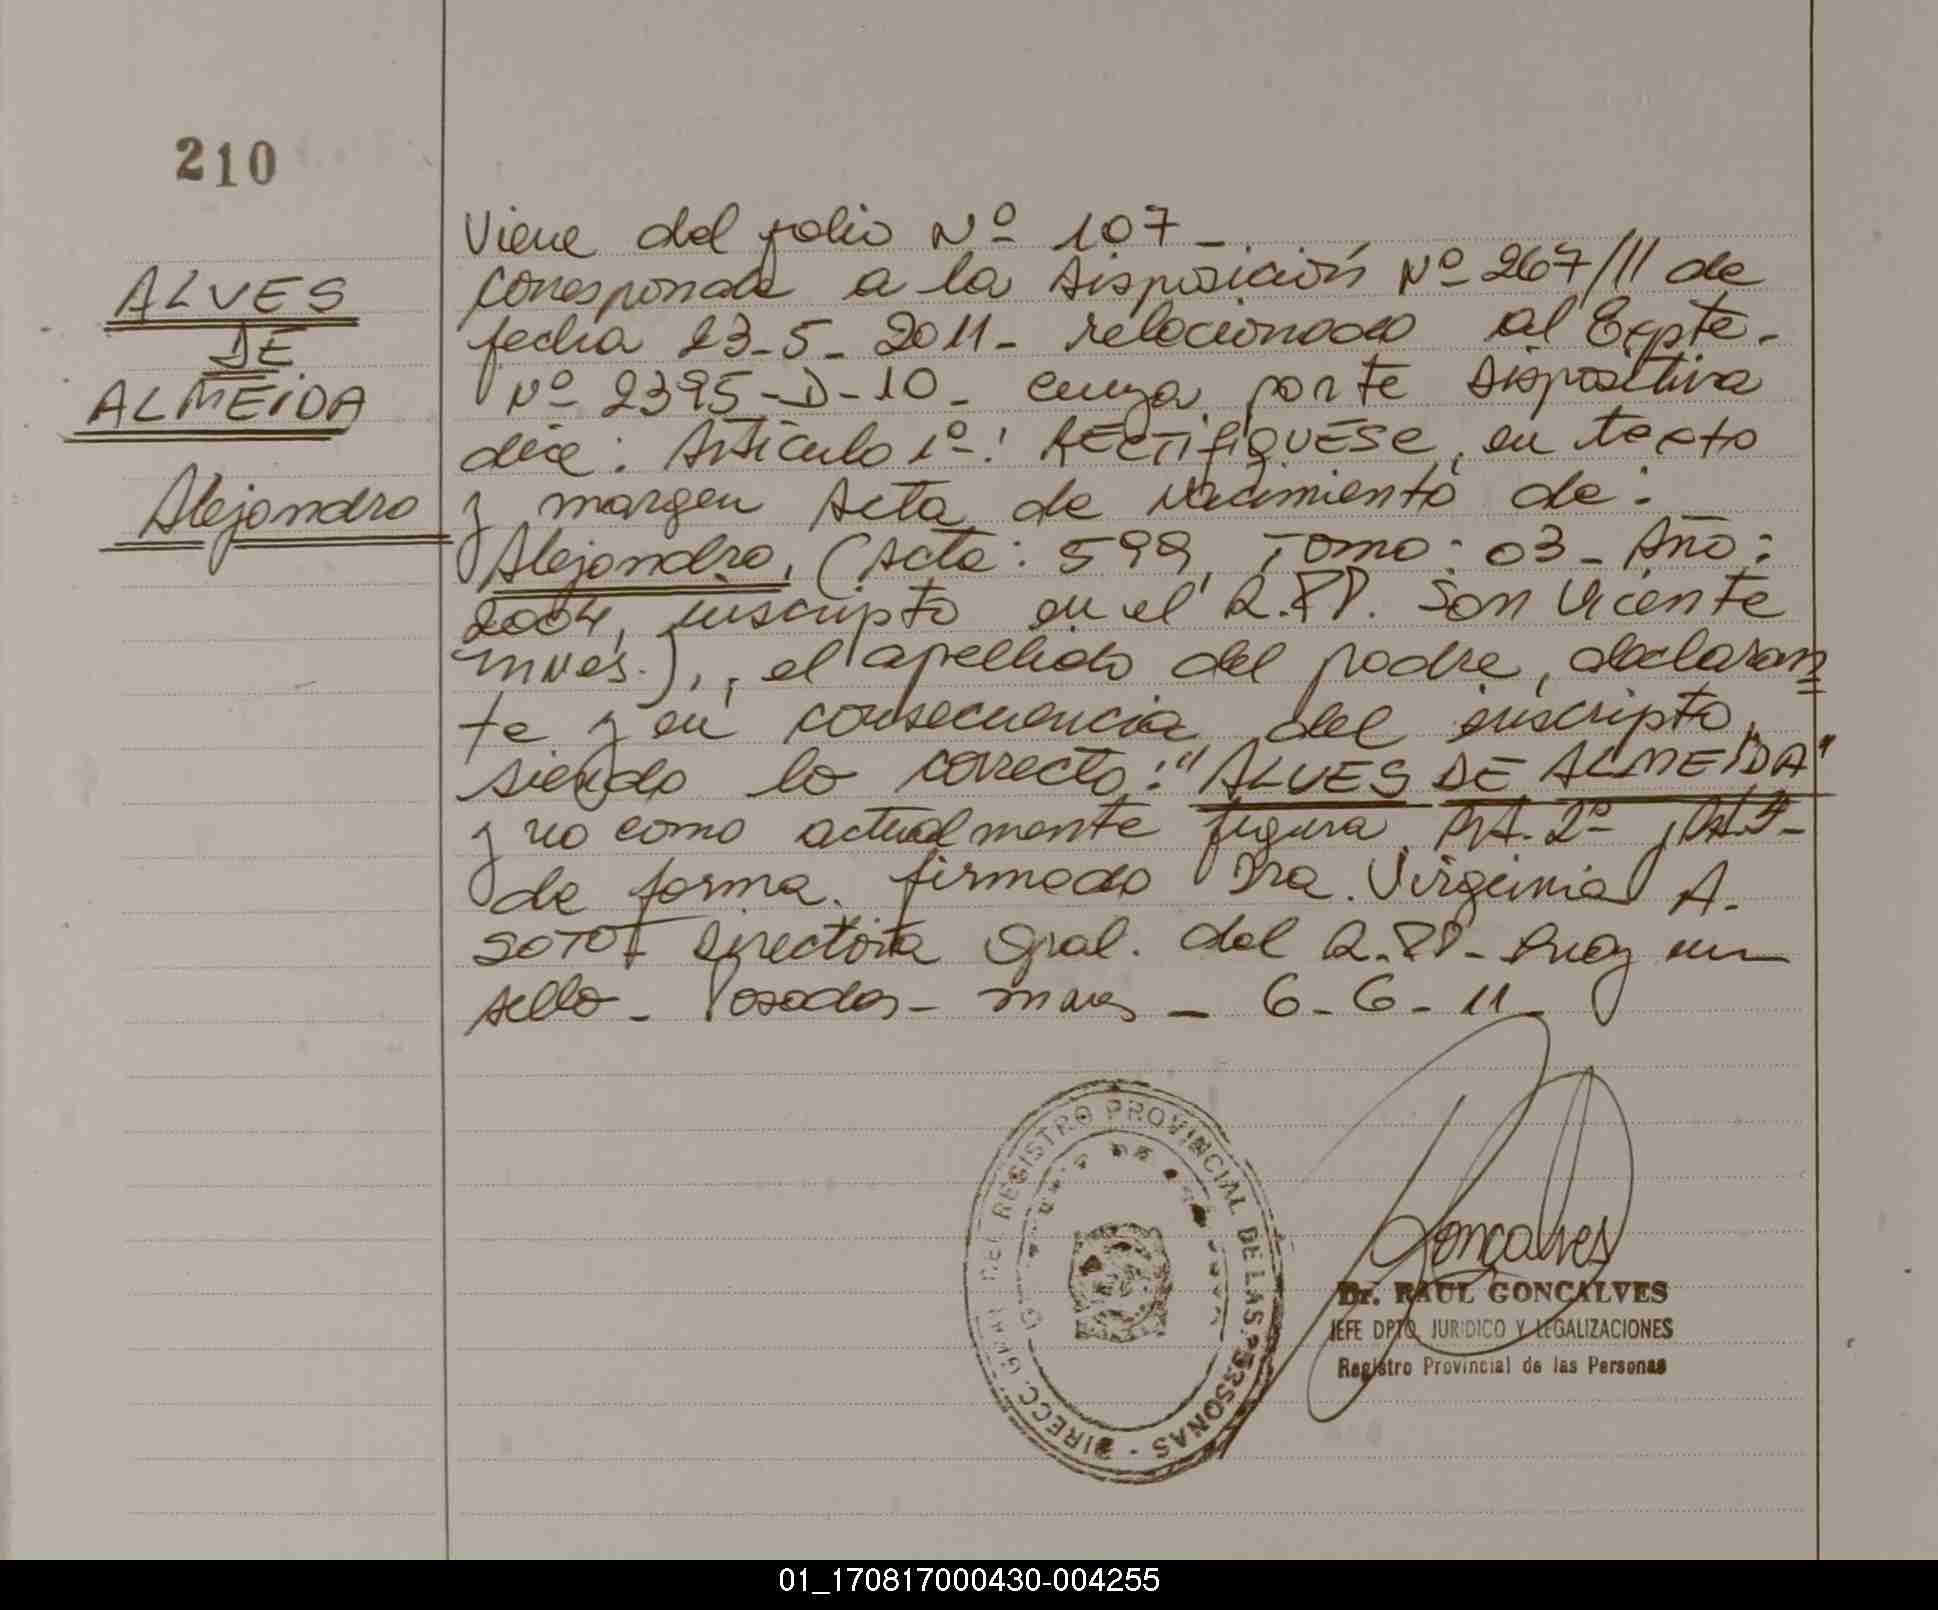 210
ALVES
DE
ALMEIDA
Alejandro
Viene del folio Nº 107 -
corresponde a la Disposición Nº 267/11 de
fecha 23-5-2011- relacionado al Expte.
Nº 2395-D-10- cuya parte Dispositiva
dice: Artículo 1º: RECTIFIQUESE, en texto
y margen Acta de Nacimiento de:
Alejandro, (Acta: 599, Tomo: 03- Año:
2004, inscripto en el R.PP. San Vicente
Mnes.), el apellido del padre, declaran
te y en consecuencia del inscripto,
siendo lo correcto: "ALVES DE ALMEIDA"
y no como actualmente figura. Art. 2º
de forma. firmado Dra. Virginia A.
SOTO- Directora Gral. del R.PP- Hay un
sello- Posadas- Mnes - 6-6-11-
DIRECC. GRAL DEL REGISTRO PROVINCIAL DE LAS PERSONAS -
Goncalves
Dr. RAUL GONCALVES
JEFE DPTO. JURIDICO Y LEGALIZACIONES
Registro Provincial de las Personas
01_170817000430-004255